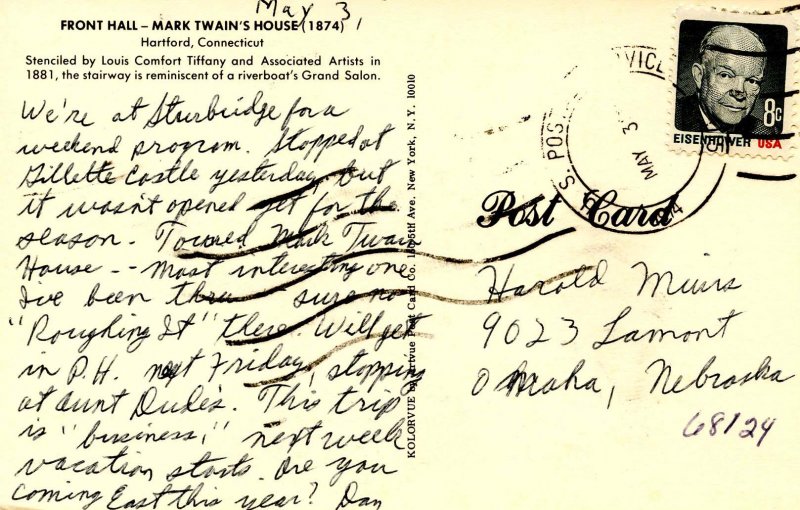 May 3,
FRONT HALL – MARK TWAIN'S HOUSE (1874)
Hartford, Connecticut
Stenciled by Louis Comfort Tiffany and Associated Artists in
1881, the stairway is reminiscent of a riverboat's Grand Salon.
We're at Sturbridge for a
weekend program. Stopped at
Gillette Castle yesterday but
it wasn't opened yet for the
season. Toured Mark Twain
House -- most interesting one
I've been thru - sure no
"Roughing It" there. Will get
in P.H. next Friday, stopping
at Aunt Dude's. This trip
is "business," next week
vacation starts. Are you
coming East this year? Dan
KOLORVUE Post Card Co. Ave. New York, N.Y. 10010
MAY 3
EISENHOWER USA
8c
Post Card
Harold
9023 Lamont
Omaha, Nebraska
68124